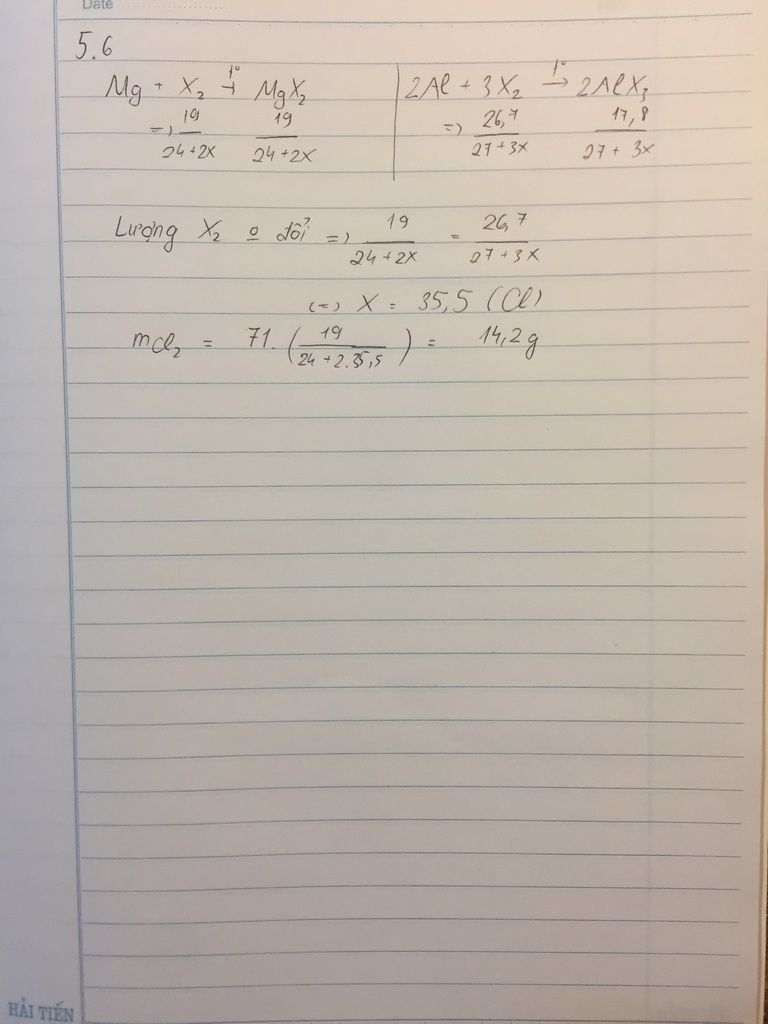 Date
5.6
Mg + X₂ →(t°) MgX₂ | 2Al + 3X₂ →(t°) 2AlX₃
=> 19/(24+2X) 19/(24+2X) | => 26,7/(27+3X) 17,8/(27+3X)
Lượng X₂ o đổi => 19/(24+2X) = 26,7/(27+3X)
(=) X = 35,5 (Cl)
mCl₂ = 71.(19/(24+2.35,5)) = 14,2g
HẢI TIẾN